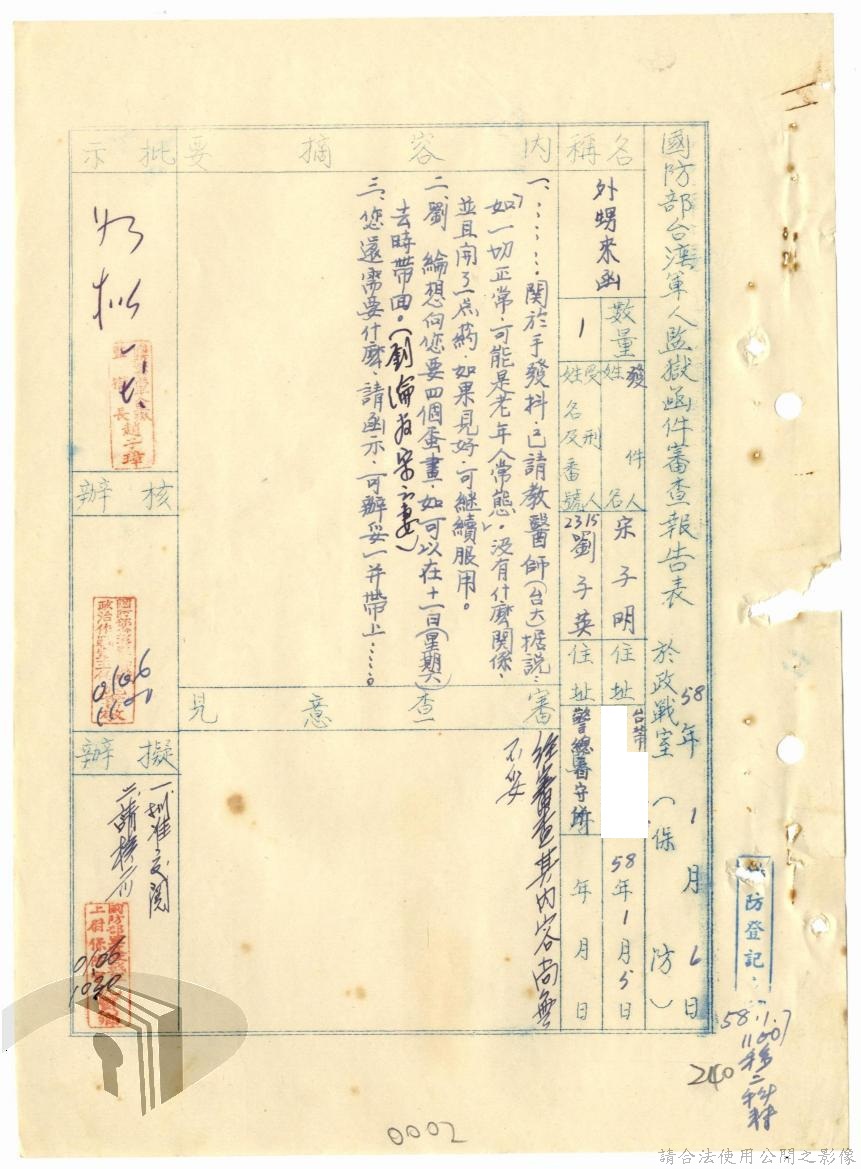 國防部台灣軍人監獄函件審查報告表
58年1月6日
於政戰室（保防）
名稱
外甥來函
數量
1
發件人姓名
宋子明
住址
台北
58年1月5日
受刑人姓名及番號
2315
劉子英
住址
警總看守所
年月日
內容摘要
一、……。関於手發抖，已請教醫師（台大）据說：
「如一切正常，可能是老年人常態」。没有什麼関係，
並且開了一点葯，如果見好，可継續服用。
二、劉　綸想向您要四個蛋畫，如可以在十一日（星期六）
去時帶回。（劉綸為宋之妻）
三、您還需要什麼，請函示，可辦妥一并帶上……。
審查意見
經審查其內容尚無
不妥
批示
如擬
長趙子瑋
核辦
0106
擬辦
一、擬准交閱
二、請核示
0106
1030
防登記
58.1.7
1100
240
0002
請合法使用公開之影像